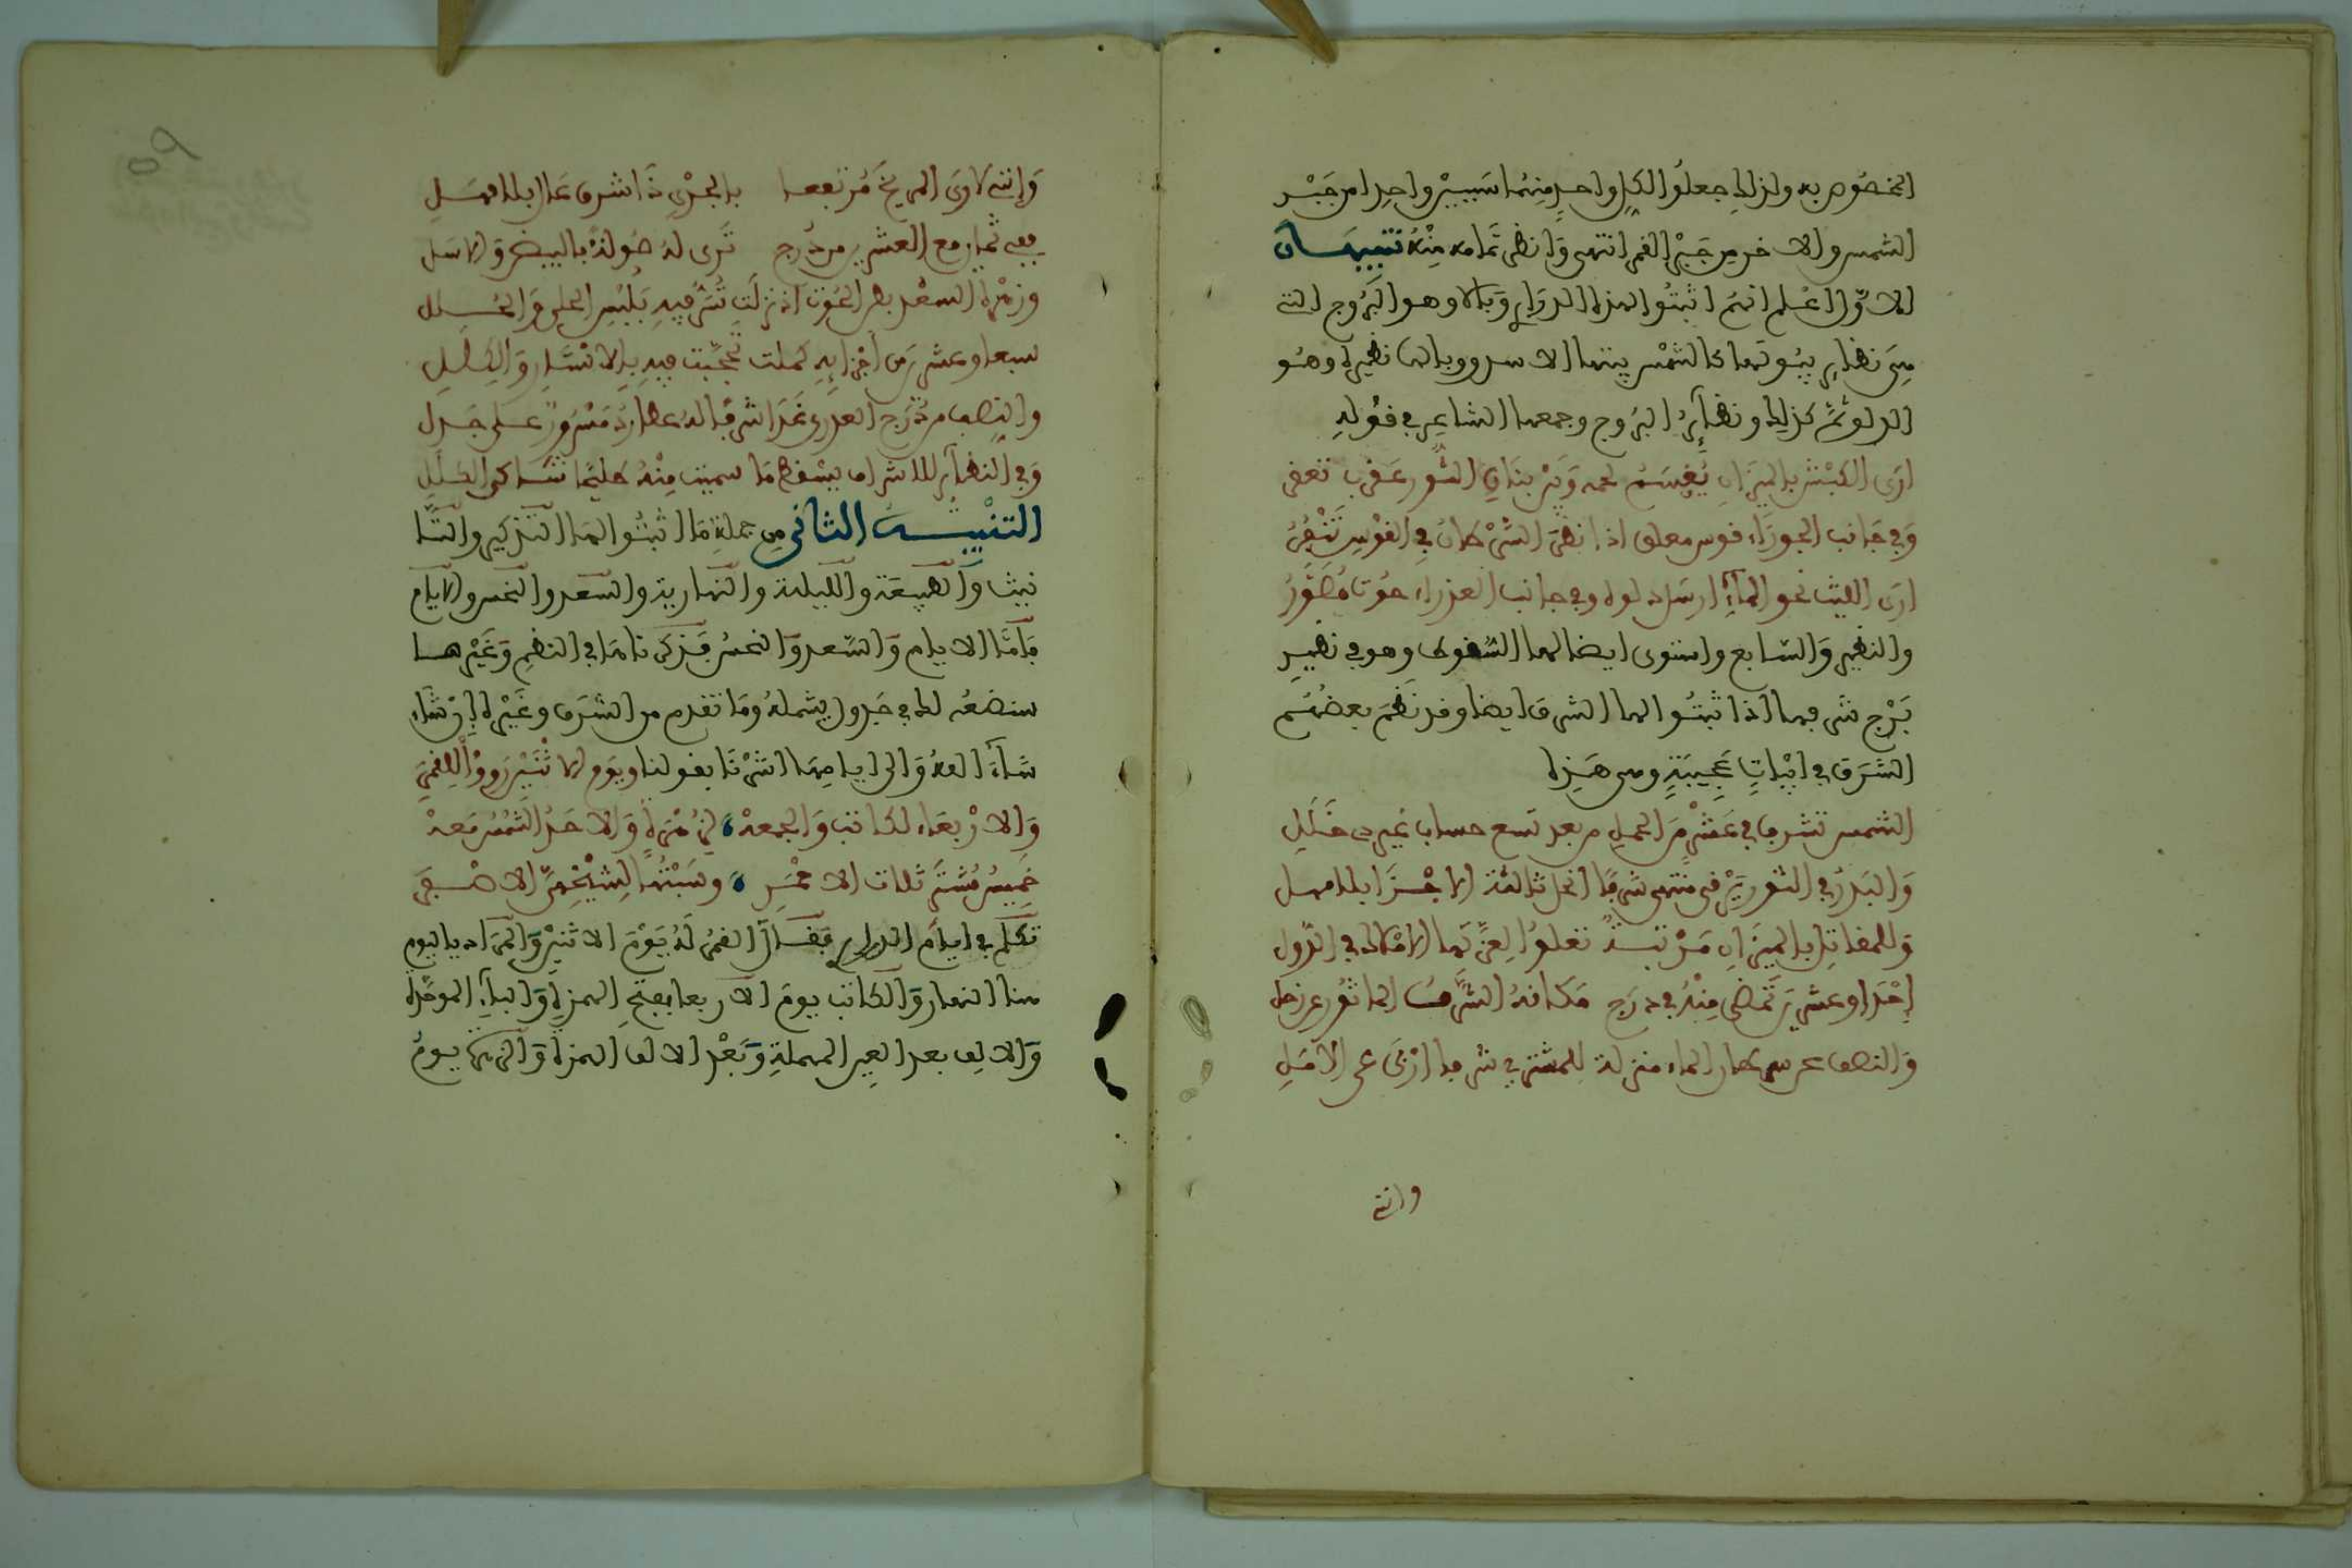 المخصوص به ولذلك جعلوا لكل واحد منهما سببين واحدا من جبر
الشمس والاخر من جبر القمر انتهى وانظر تمامه منه تنبيهان
الاول اعلم انهم اثبتوا لهذه الدراري وبالا وهو البروج التي
من نظاير بيوتها كالشمس بيتها الاسد ووبالها نظيره وهو
الدلو ثم كذلك ونظآير البروج وجمعها الشاعر في قوله
ارى الكبش بالميزان يقسم لحمه وبين بنان الثور عقرب تقفى
وفي جانب الجوزاء قوس معلق اذا نظر السرطان في القوس تنفر
ارى الليث نحو المآء ارسل دلوه وفي جانب العذراء حوتا مصور
والنظير والسابع واستوى ايضا لها السقوط وهو في نظير
برج شرفها اذ اثبتوا لها الشرف ايضا وقد نظم بعضهم
الشرف في ابيات عجيبة وهي هذه
الشمس تشرف في عشر من الحمل من بعد تسع حساب غير ذي خلل
والبدر في الثور يرقى منتهى شرفا انحل ثالثة الاجزا بلا مهل
وللمقاتل بالميزان مرتبة تعلوا لعز لها الاملاك في الدول
احدا وعشرين تمضي منه في درج مكانه الشرف الماثور عن زحل
والنصف من سرطان الماء منزلة للمشتري شرفا اربى على الامل
وانثـ
وانثـ لاوى المريخ مرتفعا بالجدي ذا شرف عال بلا فشل
ففي ثمان مع العشرين من درج ترى له صولة بالبيض والاسل
وزهرة السعد بطن الحوت اذ نزلت تشرف فيه بلبس الحلي والحلل
سبعا وعشرين من اجزايه كملت تحجبت فيه بالاستار والكلل
والنصف من درج العذرى غدا شرفا له عطارد مسرور على جدل
وفي النظآير للاشراف يسقط ما سميت منه كليما شاكي الطلل
التنبيه الثاني من جملة ما اثبتوا لها التذكير والتـا
نيث والطبيعة والليلية والنهارية والسعد والنحس والايام
فاما الايام والسعد والنحس فذكرناها في النظم وغيرها
سنضعه لك في جدول يشمله وما تقدم من الشرف وغيره ان شاء
شآء الله والى ايامها اشرنا بقولنا ويوم الاثنين رووا للقمر
والاربعاء لكاتب والجمعة لزهرة والاحد الشمس معه
خميس مشتر ثلاث الاحمر وسبتها لشيخهن الاصغر
تكلم في ايام الدراري فقال القمر له يوم الاثنين والمراد باليوم
هنا النهار والكاتب يوم الاربعا بفتح الهمزة والبآء الموحدة
والالف بعد العين المهملة وبعد الالف الهمزة والزهرة يوم